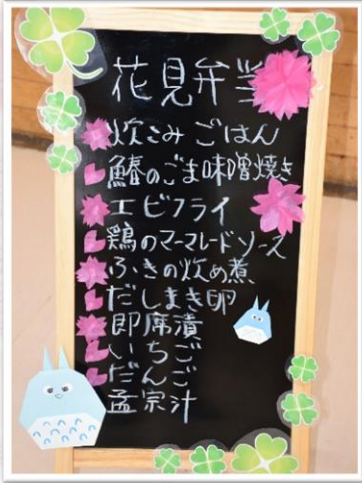 花見弁当
炊こみごはん
鰆のごま味噌焼き
エビフライ
鶏のマーマレードソース
ふきの炊め煮
だしまき卵
即席漬
いちご
だんご
孟宗汁